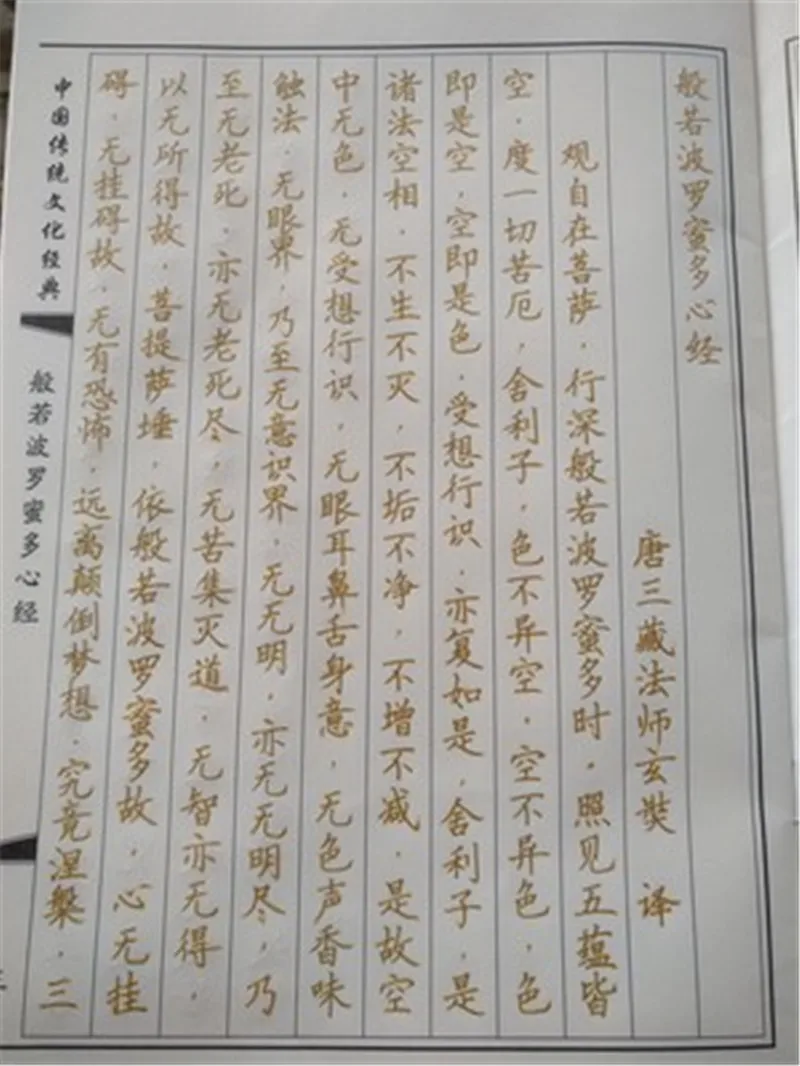 般若波罗蜜多心经
唐三藏法师玄奘 译
观自在菩萨,行深般若波罗蜜多时,照见五蕴皆
空,度一切苦厄,舍利子,色不异空,空不异色,色
即是空,空即是色,受想行识,亦复如是,舍利子,是
诸法空相,不生不灭,不垢不净,不增不减,是故空
中无色,无受想行识,无眼耳鼻舌身意,无色声香味
触法,无眼界,乃至无意识界,无无明,亦无无明尽,乃
至无老死,亦无老死尽,无苦集灭道,无智亦无得,
以无所得故,菩提萨埵,依般若波罗蜜多故,心无挂
碍,无挂碍故,无有恐怖,远离颠倒梦想,究竟涅槃,三
中国传统文化经典
般若波罗蜜多心经